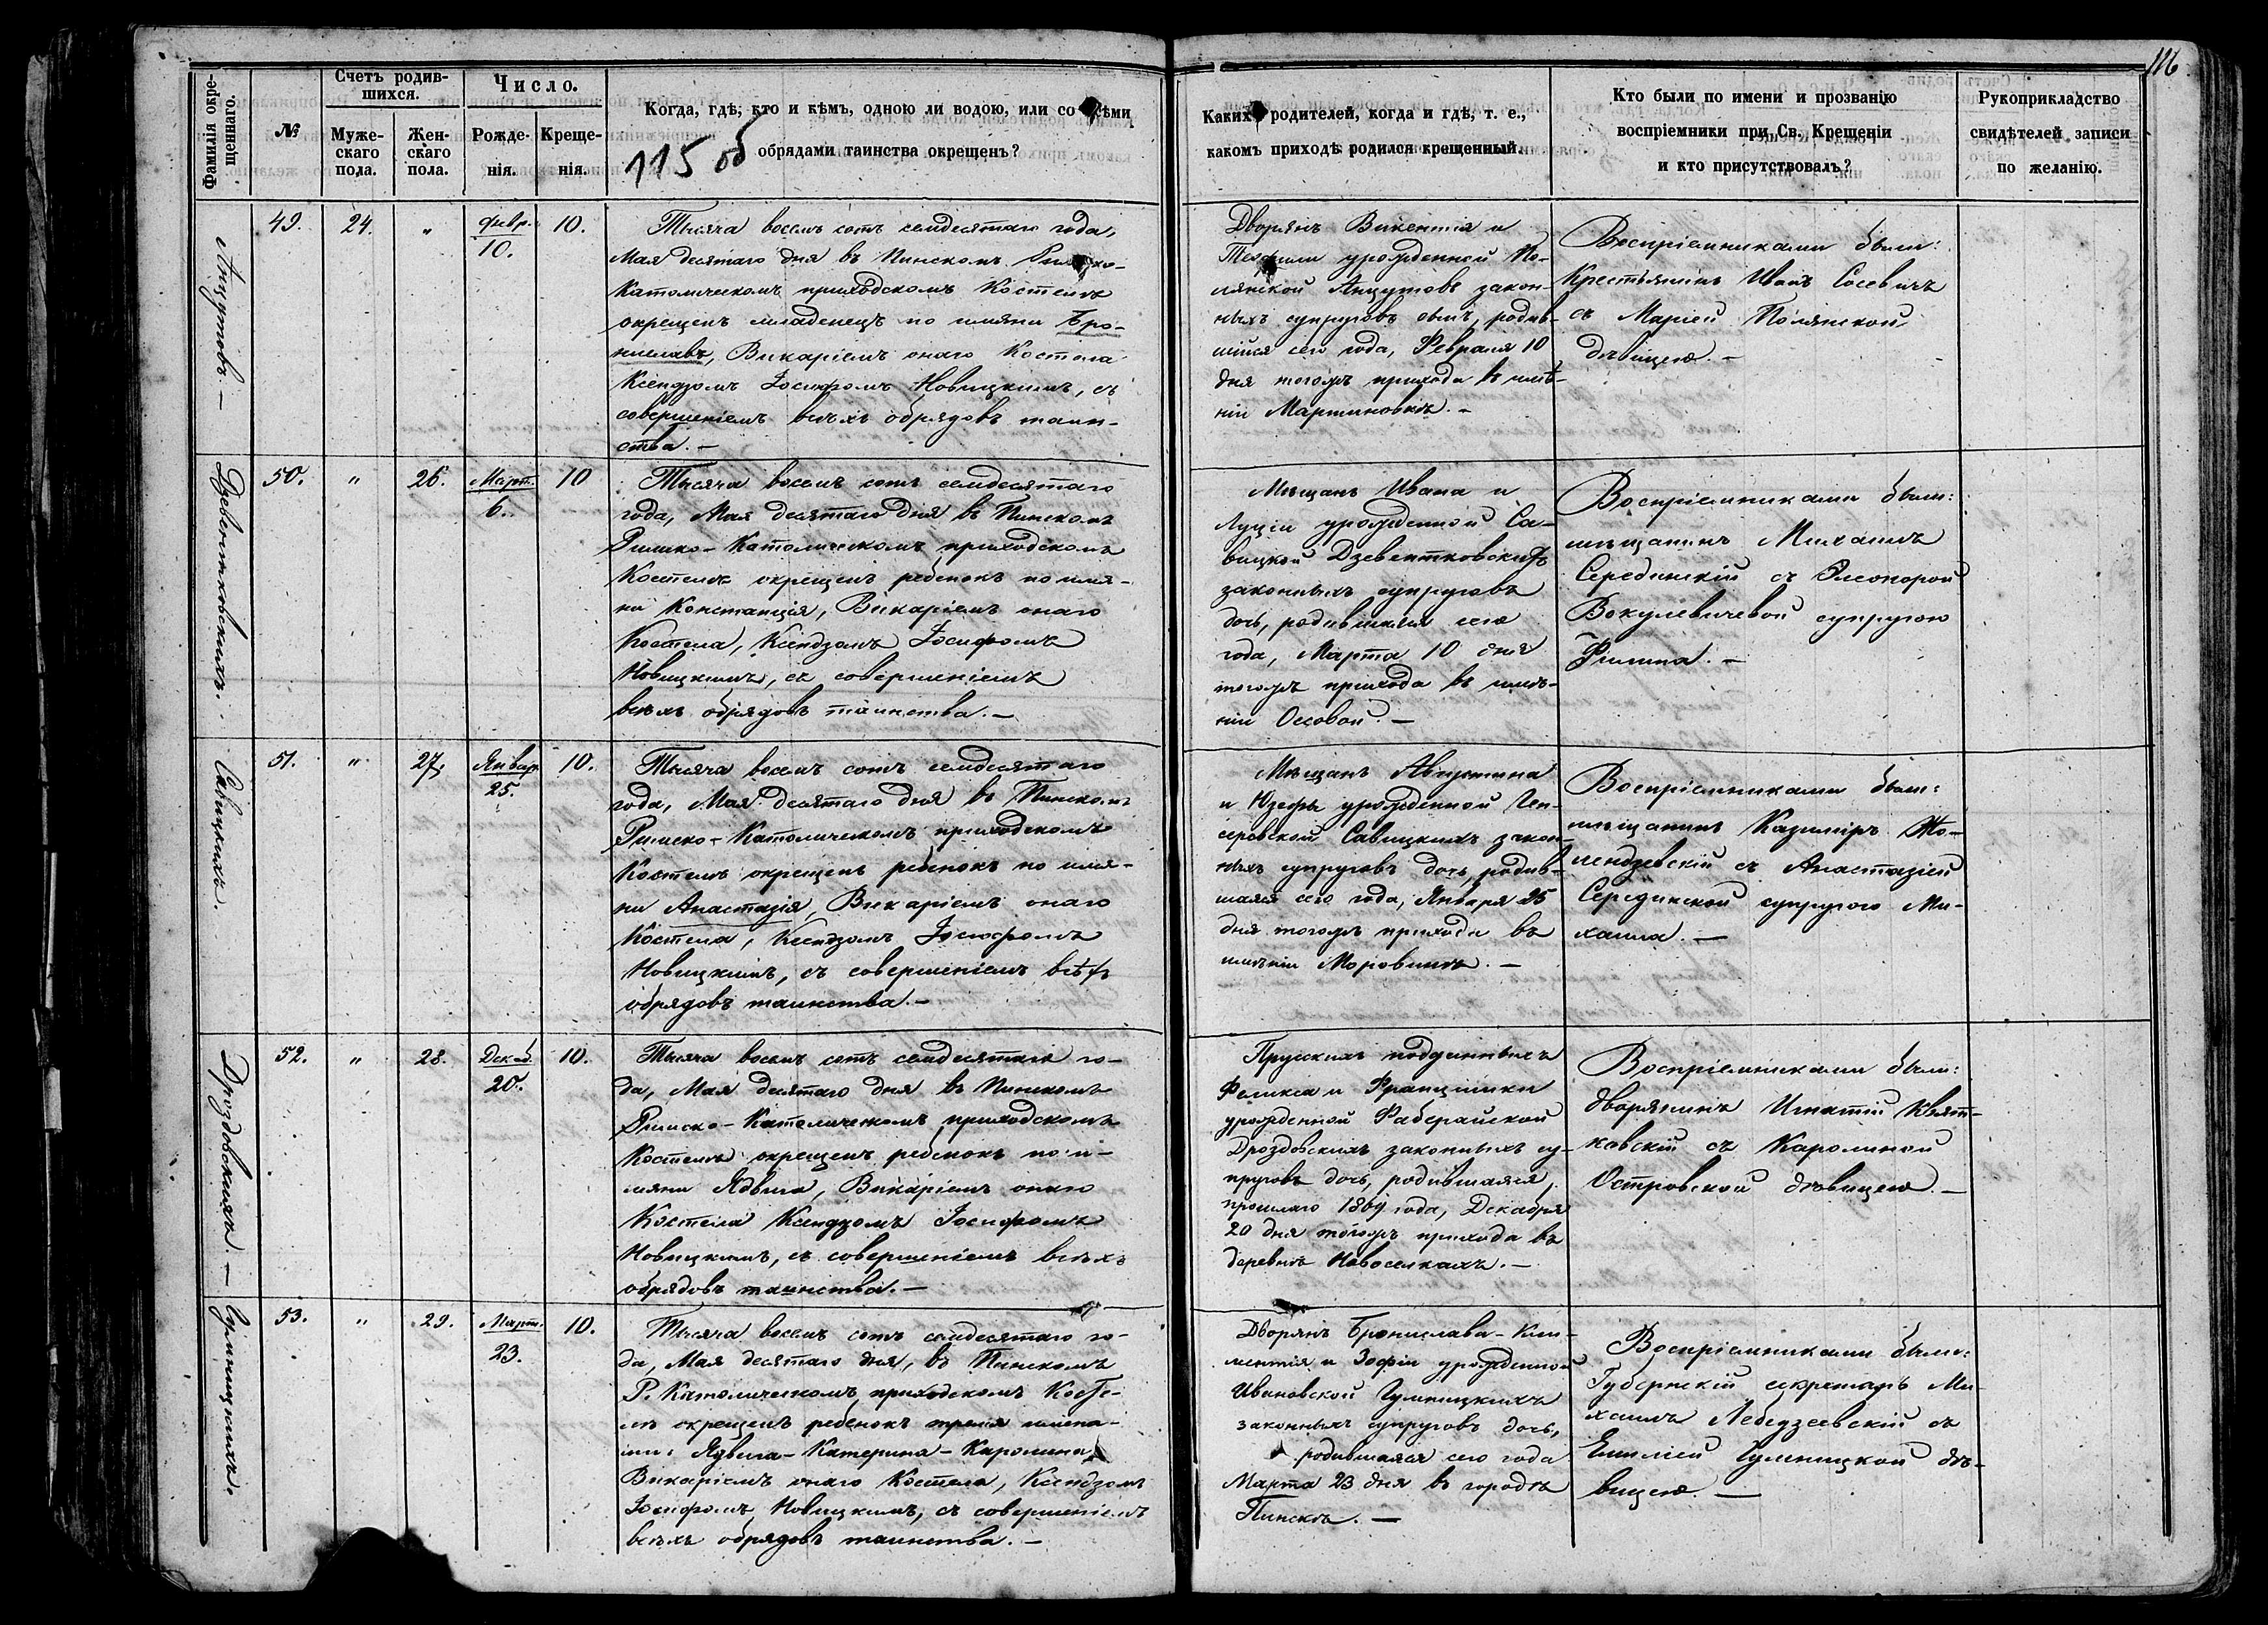 116
Фамилія окре-
щеннаго.
№
Счетъ родив-
шихся.
Муже-
скаго
пола.
Жен-
скаго
пола.
Число.
Рожде-
нія.
Креще-
нія.
Когда, гдѣ, кто и кѣмъ, одною ли водою, или со всѣми
обрядами таинства окрещенъ?
115 об
Какихъ родителей, когда и гдѣ, т. е.,
какомъ приходѣ родился крещенный.
Кто были по имени и прозванію
воспріемники при Св. Крещеніи
и кто присутствовалъ?
Рукоприкладство
свидѣтелей записи
по желанію.
Анцутовъ. —
49.
24.
"
Февр.
10.
10.
Тысяча восемь сотъ семдесятаго года,
Мая десятаго дня въ Пинскомъ Римско-
Католическомъ приходскомъ Костелѣ
окрещенъ младенецъ по имяни Бро-
ниславъ, Викаріемъ онаго Костела
Ксендзомъ Іосифомъ Новицкимъ, съ
совершеніемъ всѣхъ обрядовъ таин-
ства. —
Дворянъ Викентія и
Теофили урожденной По-
лянской Анцутовъ закон-
ныхъ супруговъ сынъ, родив-
шійся сего года, Февраля 10
дня тогожъ прихода въ имѣ-
ніи Мартиновкѣ. —
Воспріемниками были:
Крестьянинъ Иванъ Сосевичъ
съ Маріей Полянской
дѣвицею. —
Дзевентковскихъ.
50.
"
26.
Март.
6.
10
Тысяча восемь сотъ семдесятаго
года, Мая десятаго дня въ Пинскомъ
Римско-Католическомъ приходскомъ
Костелѣ окрещенъ ребенокъ по имя-
ни Констанція, Викаріемъ онаго
Костела, Ксендзомъ Іосифомъ
Новицкимъ, съ совершеніемъ
всѣхъ обрядовъ таинства. —
Мѣщанъ Ивана и
Луціи урожденной Са-
вицкой Дзевентковскихъ
законныхъ супруговъ
дочь, родившаяся сего
года, Марта 10 дня
тогожъ прихода въ имѣ-
ніи Оссовой. —
Воспріемниками были:
мѣщанинъ Михаилъ
Серединскій съ Элеонорой
Вокулевичевой супругою
Филипа. —
Савицкихъ.
51.
"
27.
Январ.
25.
10.
Тысяча восемь сотъ семдесятаго
года, Мая десятаго дня въ Пинскомъ
Римско-Католическомъ приходскомъ
Костелѣ окрещенъ ребенокъ по имя-
ни Анастазія, Викаріемъ онаго
Костела, Ксендзомъ Іосифомъ
Новицкимъ, съ совершеніемъ всѣхъ
обрядовъ таинства. —
Мѣщанъ Августина
и Юзефы урожденной
Савицкихъ закон-
ныхъ супруговъ дочь, родив-
шаяся сего года, Января 25
дня тогожъ прихода въ
имѣніи Моровинѣ. —
Воспріемниками были:
мѣщанинъ Казиміръ
съ Анастазіей
Серединской супругою Ми-
хаила. —
Дроздовскихъ. —
52.
"
28.
Декаб.
20.
10.
Тысяча восемь сотъ семдесятаго го-
да, Мая десятаго дня въ Пинскомъ
Римско-Католическомъ приходскомъ
Костелѣ окрещенъ ребенокъ по и-
мяни Ядвига, Викаріемъ онаго
Костела Ксендзомъ Іосифомъ
Новицкимъ, съ совершеніемъ всѣхъ
обрядовъ таинства. —
Прусскихъ подданныхъ
Феликса и Францишки
урожденной Фаберайской
Дроздовскихъ законныхъ су-
пруговъ дочь, родившаяся,
прошлаго 1869 года, Декабря
20 дня тогожъ прихода въ
деревнѣ Новоселкахъ. —
Воспріемниками были:
дворянинъ Игнатій Квят-
ковскій съ Каролиной
Островской дѣвицею. —
53.
"
29.
Март.
23.
10.
Тысяча восемь сотъ семдесятаго го-
да, Мая десятаго дня, въ Пинскомъ
Р. Католическомъ приходскомъ Косте-
лѣ окрещенъ ребенокъ тремя имена-
ми: Ядвига-Катерина-Каролина
Викаріемъ онаго Костела, Ксендзомъ
Іосифомъ Новицкимъ, съ совершеніемъ
всѣхъ обрядовъ таинства. —
Дворянъ Бронислава-Кли-
ментія и Зофіи урожденной
Ивановской
законныхъ супруговъ дочь,
родившаяся сего года
Марта 23 дня въ городѣ
Пинскѣ. —
Воспріемниками были:
Губернскій секретарь Ми-
хаилъ Лебедзеевскій съ
Емиліей дѣ-
вицею. —